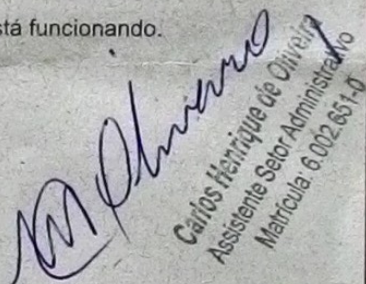 stá funcionando.
Oliveira
Carlos Henrique de Oliveira
Assistente Setor Administrativo
Matrícula: 6.002.651-0